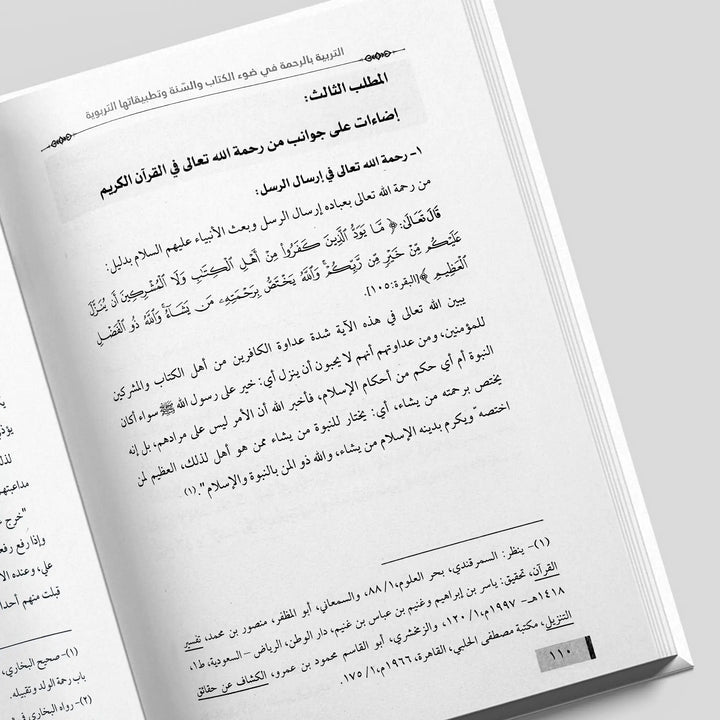 التربية بالرحمة في ضوء الكتاب والسّنة وتطبيقاتها التربوية
المطلب الثالث:
إضاءات على جوانب من رحمة الله تعالى في القرآن الكريم
١- رحمة الله تعالى في إرسال الرسل:
من رحمة الله تعالى بعباده إرسال الرسل وبعث الأنبياء عليهم السلام بدليل:
قَالَ تَعَالَى: ﴿ مَّا يَوَدُّ ٱلَّذِينَ كَفَرُواْ مِنْ أَهْلِ ٱلْكِتَٰبِ وَلَا ٱلْمُشْرِكِينَ أَن يُنَزَّلَ
عَلَيْكُم مِّنْ خَيْرٍ مِّن رَّبِّكُمْ وَٱللَّهُ يَخْتَصُّ بِرَحْمَتِهِۦ مَن يَشَآءُ وَٱللَّهُ ذُو ٱلْفَضْلِ
ٱلْعَظِيمِ ﴾[البقرة:١٠٥].
يبين الله تعالى في هذه الآية شدة عداوة الكافرين من أهل الكتاب والمشركين
للمؤمنين، ومن عداوتهم أنهم لا يحبون أن ينزل أي: خير على رسول الله ﷺ سواء أكان
النبوة أم أي حكم من أحكام الإسلام، فأخبر الله أن الأمر ليس على مرادهم، بل إنه
يختص برحمته من يشاء، أي: يختار للنبوة من يشاء ممن هو أهل لذلك، العظيم لمن
اختصه "ويكرم بدينه الإسلام من يشاء، والله ذو المن بالنبوة والإسلام".(١)
(١)- ينظر: السمرقندي، بحر العلوم،١/ ٨٨، والسمعاني، أبو المظفر، منصور بن محمد، تفسير
القرآن، تحقيق: ياسر بن إبراهيم وغنيم بن عباس بن غنيم، دار الوطن، الرياض – السعودية، ط١،
١٤١٨هـ- ١٩٩٧م،١/ ١٢٠، والزمخشري، أبو القاسم محمود بن عمرو، الكشاف عن حقائق
التنزيل، مكتبة مصطفى الحلبي، القاهرة، ١٩٦٦م،١/ ١٧٥.
١١٠
مداعبتهم
"خرج
وإذا رفع رفع
علي، وعنده الا
قبلت منهم أحدا
(١)- صحيح البخاري،
باب رحمة الولد وتقبيله.
(٢)- رواه البخاري في